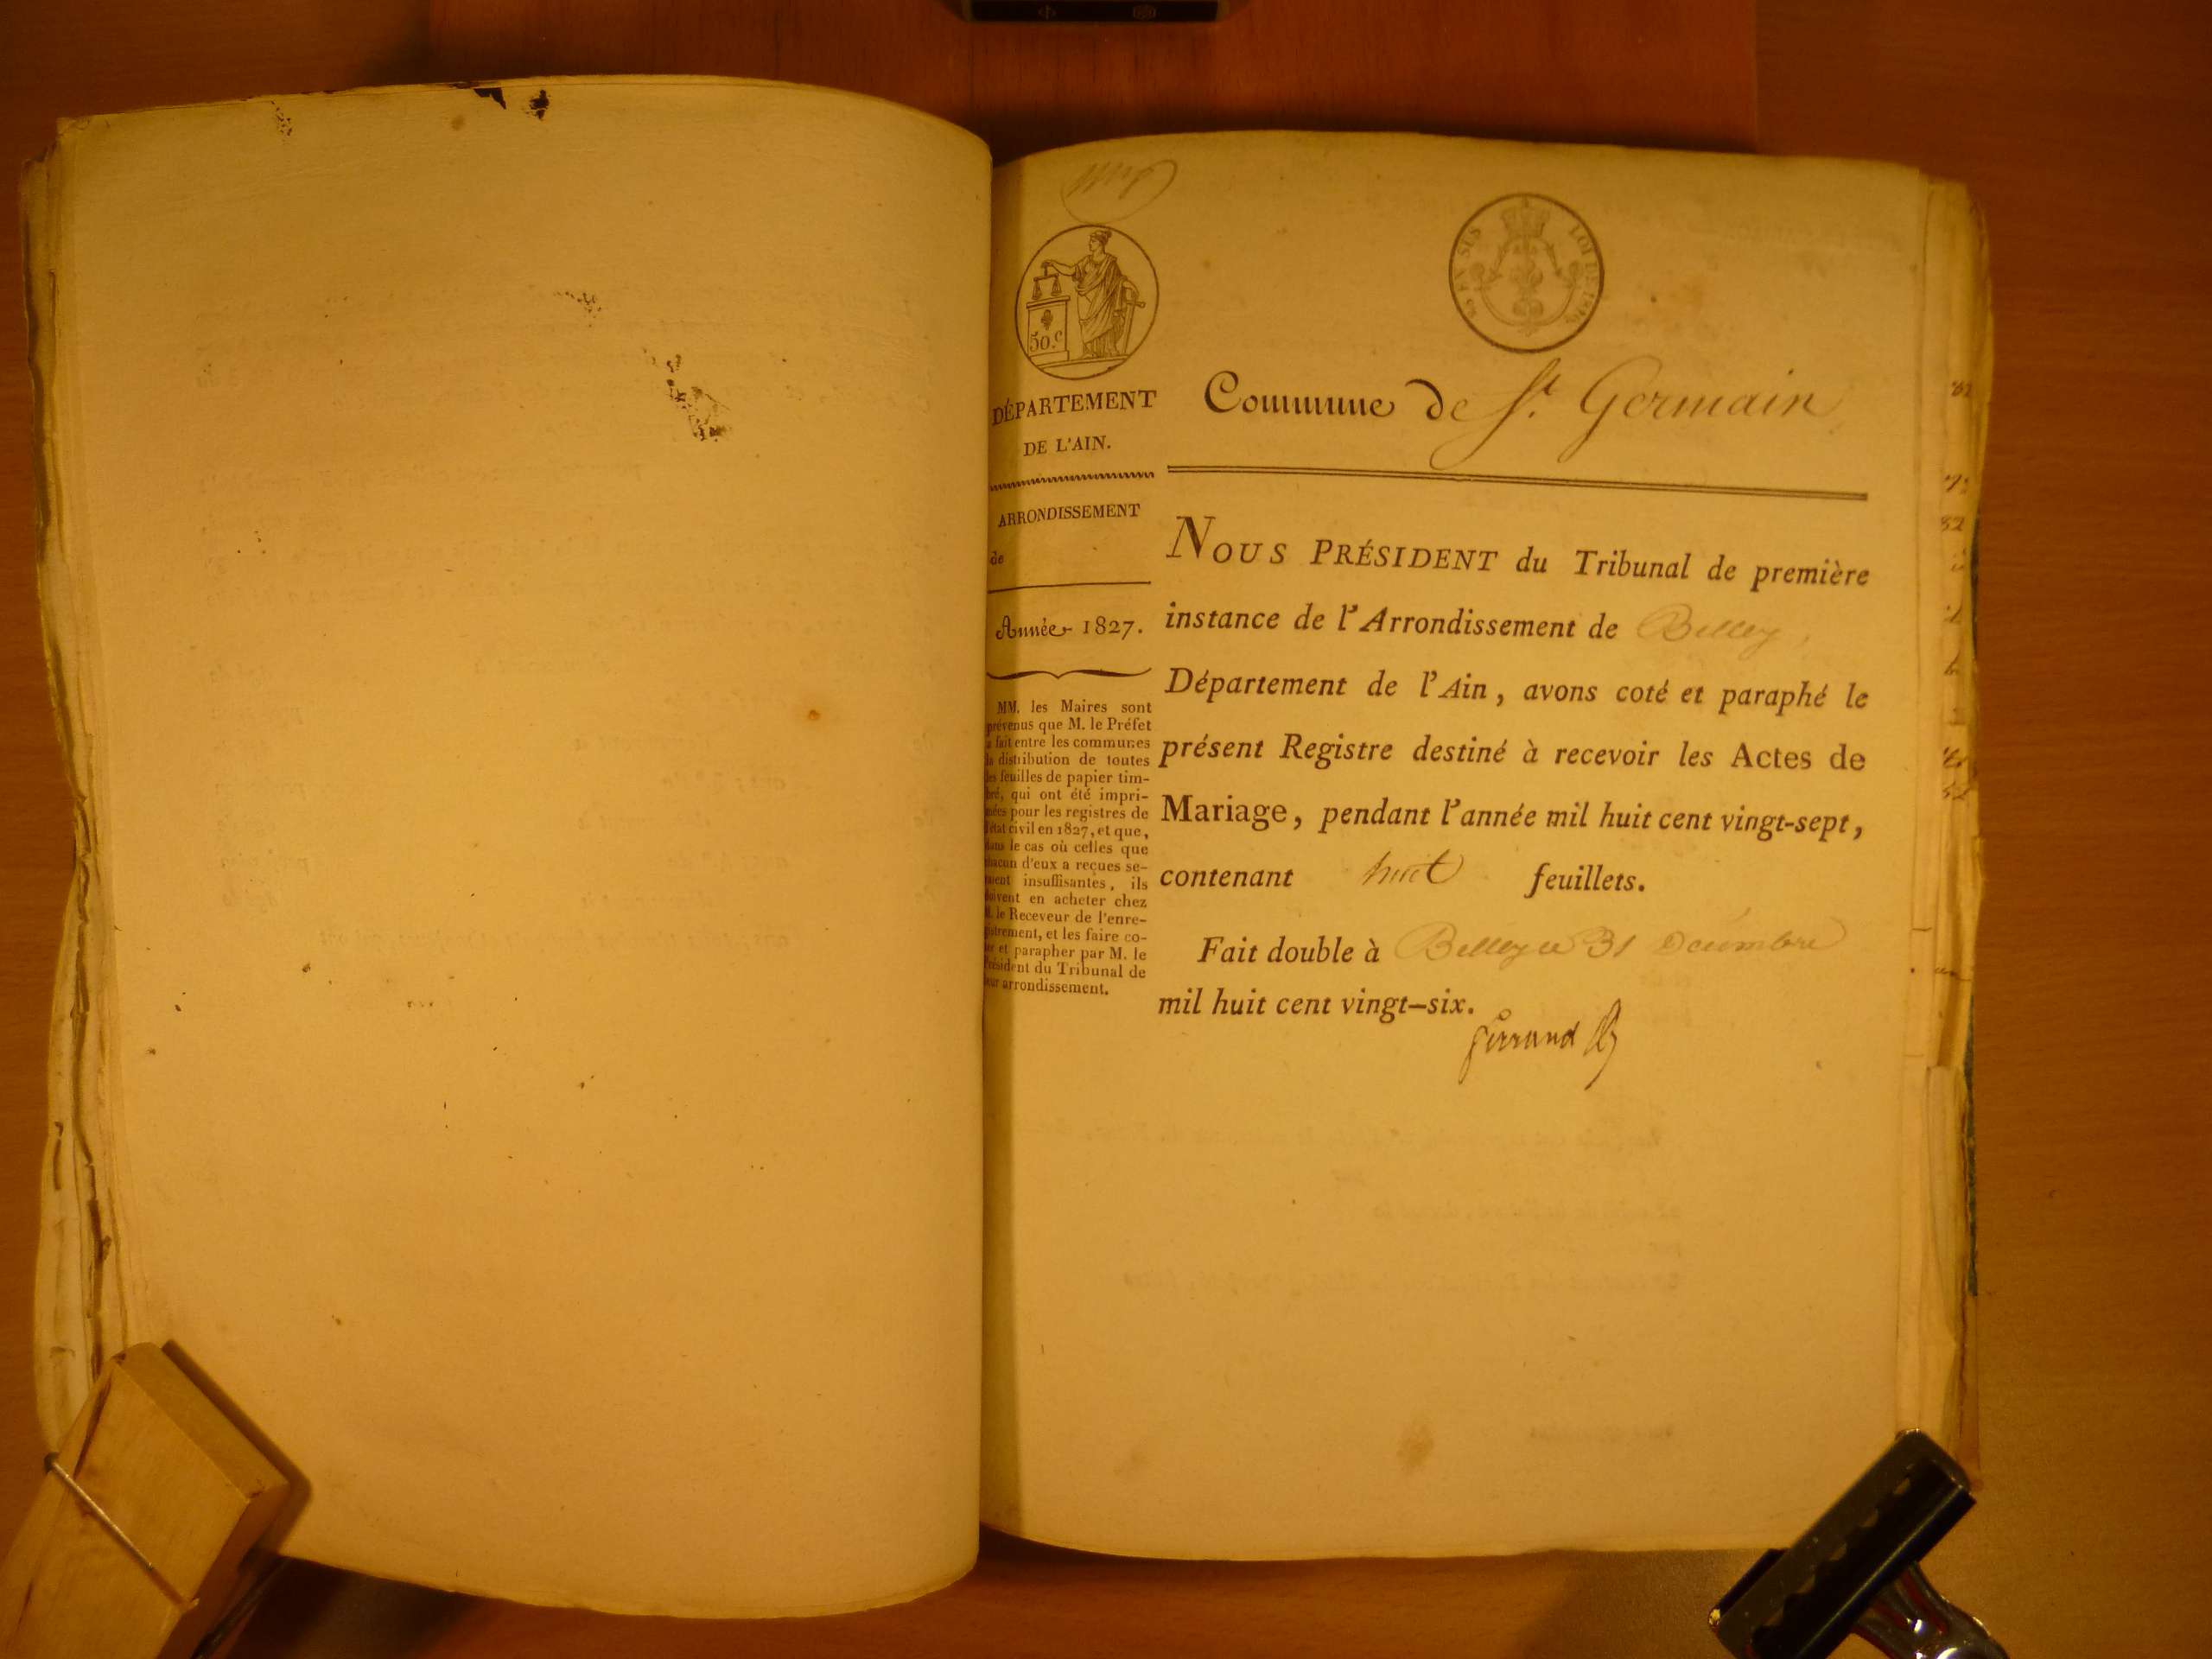 50.c
EN SUS
LOI DE 1816
DÉPARTEMENT
DE L'AIN.
ARRONDISSEMENT
de
Année 1827.
MM. les Maires sont
prévenus que M. le Préfet
a fait entre les communes
la distribution de toutes
les feuilles de papier tim-
bré, qui ont été impri-
mées pour les registres de
l'état civil en 1827, et que,
dans le cas où celles que
chacun d'eux a reçues se-
raient insuffisantes, ils
doivent en acheter chez
M. le Receveur de l'enre-
gistrement, et les faire co-
ter et parapher par M. le
Président du Tribunal de
leur arrondissement.
Commune de St. Germain
NOUS PRÉSIDENT du Tribunal de première
instance de l'Arrondissement de Belley,
Département de l'Ain, avons coté et paraphé le
présent Registre destiné à recevoir les Actes de
Mariage, pendant l'année mil huit cent vingt-sept,
contenant huit feuillets.
Fait double à Belley ce 31 Décembre
mil huit cent vingt-six.